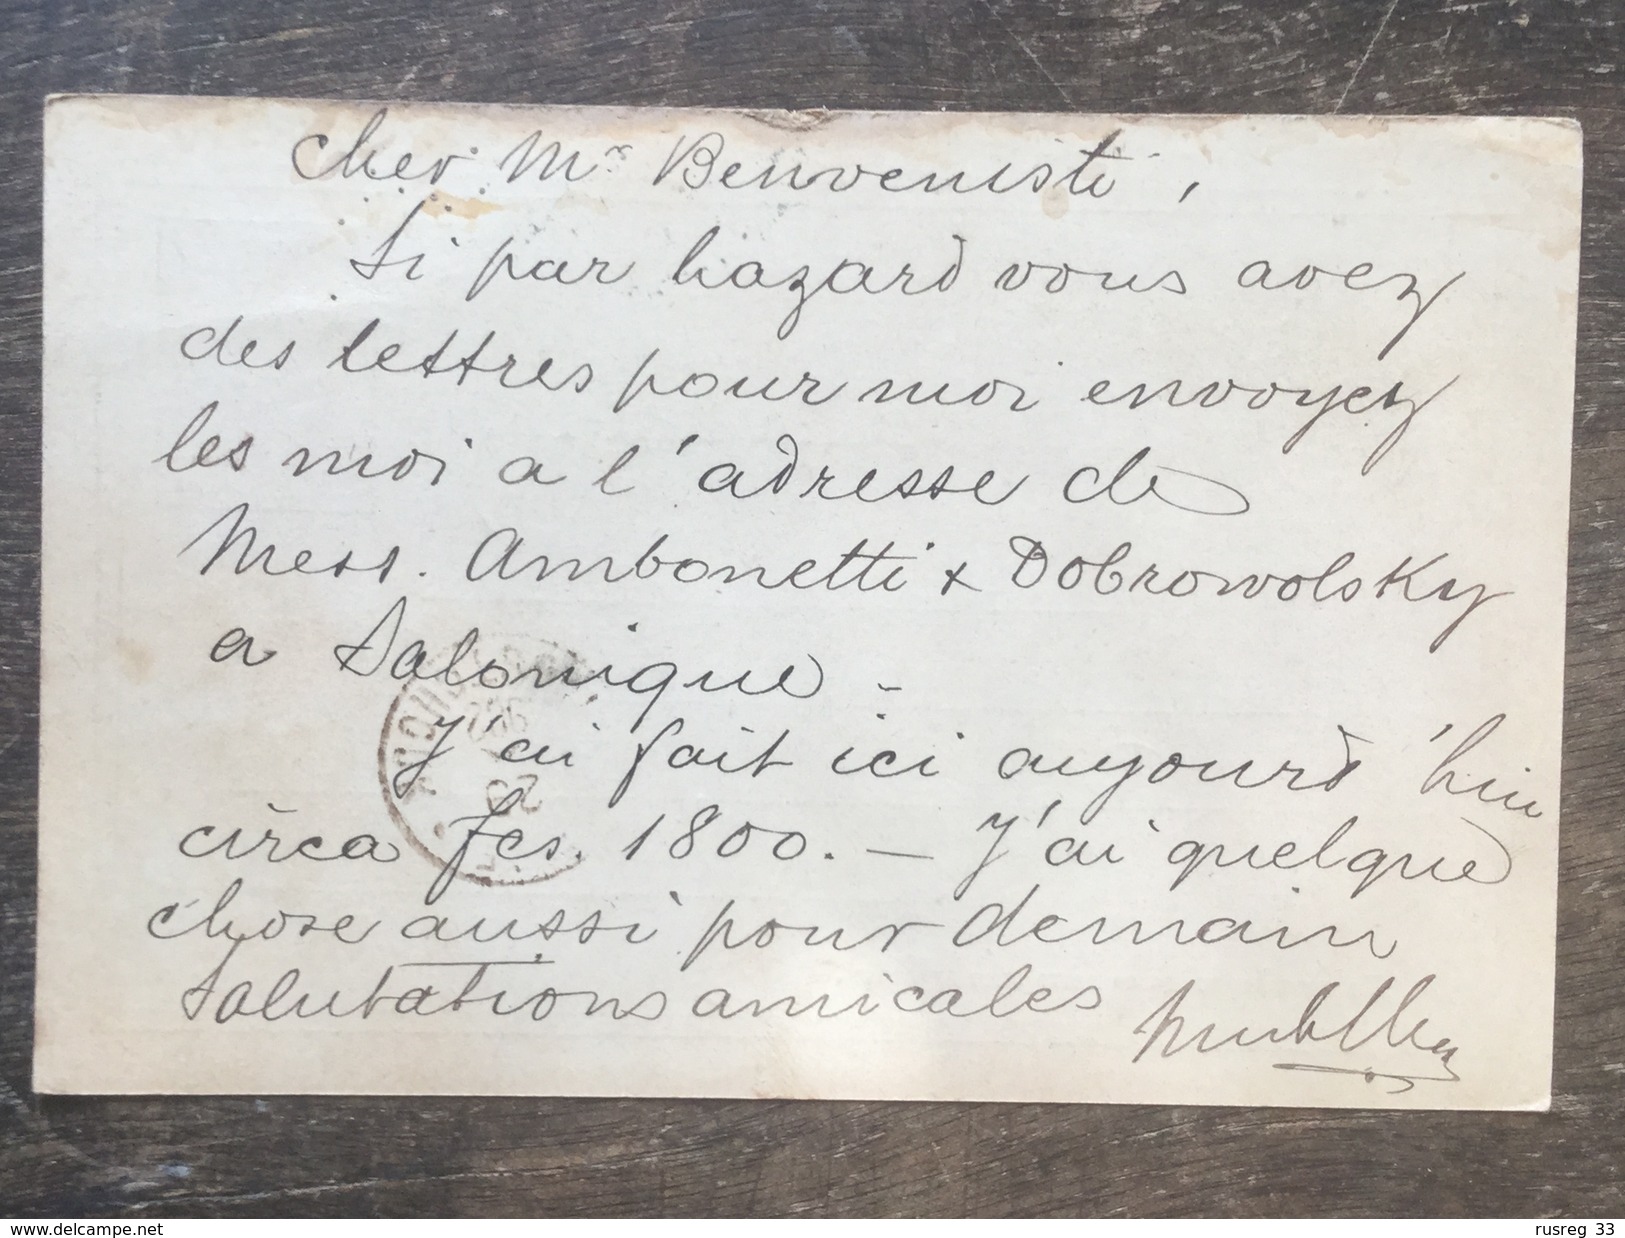 Cher Mr Benvenisti,
Si par hazard vous avez
des lettres pour moi envoyez
les moi a l'adresse de
Mess. Ambonetti & Dobrowolsky
a Salonique -
J'ai fait ici aujourd'hui
circa fcs. 1800. — J'ai quelque
chose aussi pour demain
Salutations amicales
www.delcampe.net
rusreg_33